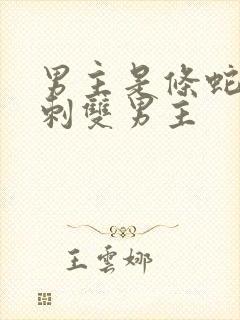 男主是條蛇
刺雙男主
王雲娜